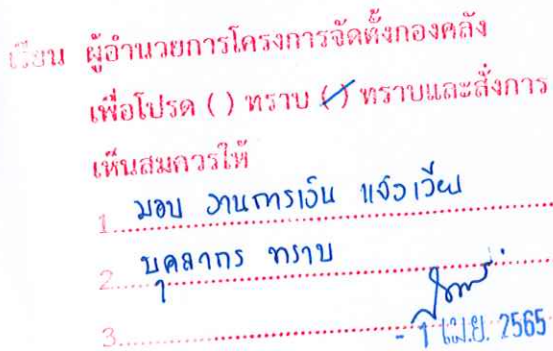 เรียน ผู้อำนวยการโครงการจัดตั้งกองคลัง
เพื่อโปรด ( ) ทราบ (✓) ทราบและสั่งการ
เห็นสมควรให้
1 มอบ งานการเงิน แจ้งเวียน
2 บุคลากร ทราบ
3
- 1 เม.ย. 2565